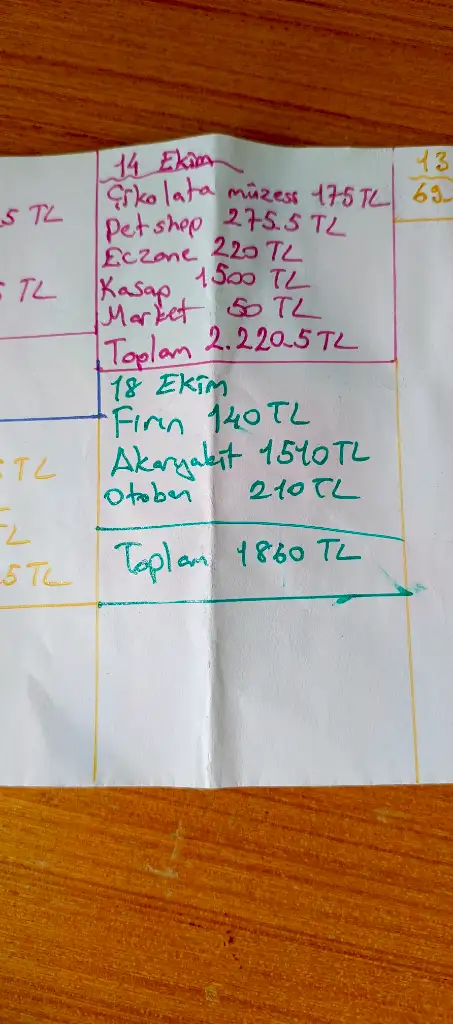 5 TL
5 TL
TL
TL
5 TL
14 Ekim
Çikolata müzess 175 TL
Petshop 275.5 TL
Eczane 220 TL
Kasap 1500 TL
Market 50 TL
Toplam 2.220.5 TL
18 Ekim
Fırın 140 TL
Akaryakıt 1510 TL
Otoban 210 TL
Toplam 1860 TL
13
69